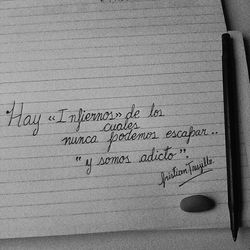 Hay «Infiernos» de los
cuales
nunca podemos escapar..
"y somos adicto".
Cristian Trujillo.